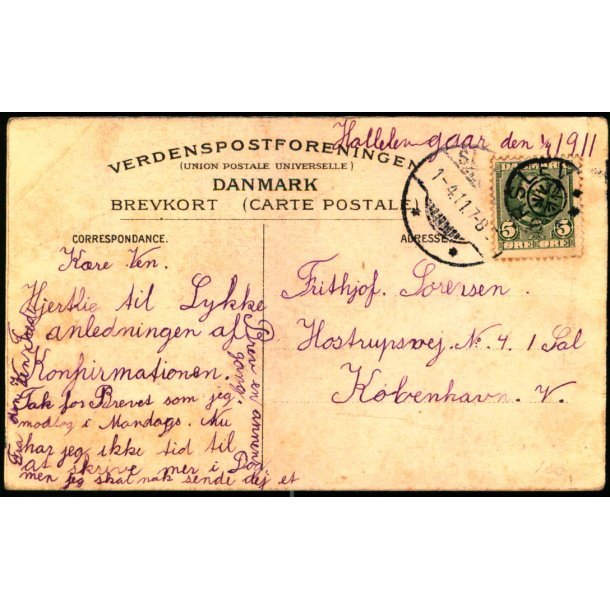 Hallelevgaar den 1/4 1911
VERDENSPOSTFORENINGEN
(UNION POSTALE UNIVERSELLE)
DANMARK
BREVKORT (CARTE POSTALE)
1-4.11.7-8
DANMARK
5 5
ØRE ØRE
CORRESPONDANCE.
ADRESSE.
Kære Ven.
Hjertlig til Lykke
anledningen af
Konfirmationen.
Tak for Brevet som jeg
modtog i Mandags. Nu
har jeg ikke tid til
at skrive mer i Dag
men jeg skal nok sende dej et
Brev en annen
gang.
Fra din Ven
Frithjof. Sørensen.
Hostrupsvej. N. 4. 1 Sal
København. V.